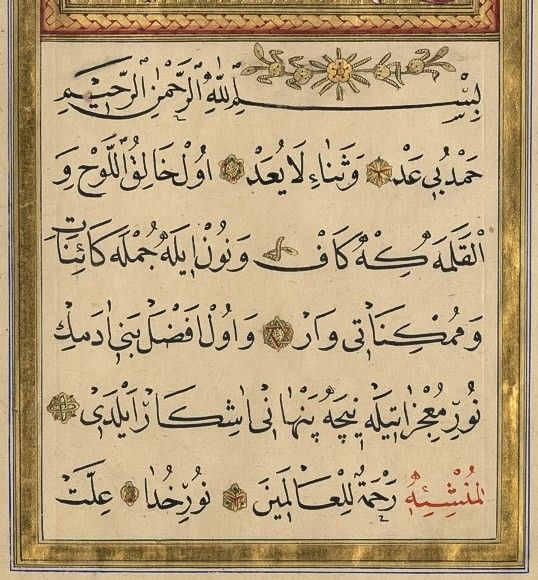 بِسْمِ اللّٰهِ الرَّحْمٰنِ الرَّحِيمِ
حَمْدِ بِى عَدْ وَثَنَاءِ لَا يُعَدْ اُولْ خَالِقُ اللَّوْحْ وَ
الْقَلَمَهْ كِهْ كَافْ وَنُونْ اِيلَهْ جُمْلَهْ كَائِنَاتِ
وَمُمْكِنَاتِى وَارْ وَاُولْ اَفْضَلِ بَنِى اٰدَمِكْ
نُورِ مُعْجِزَاتِيلَهْ نِيچَهْ پَنْهَانِى اٰشِكَارْ اَيْلَدِى
لِمُنْشِئِهْ رَحْمَةً لِلْعَالَمِينَ نُورِ خُدَا عِلَّتْ